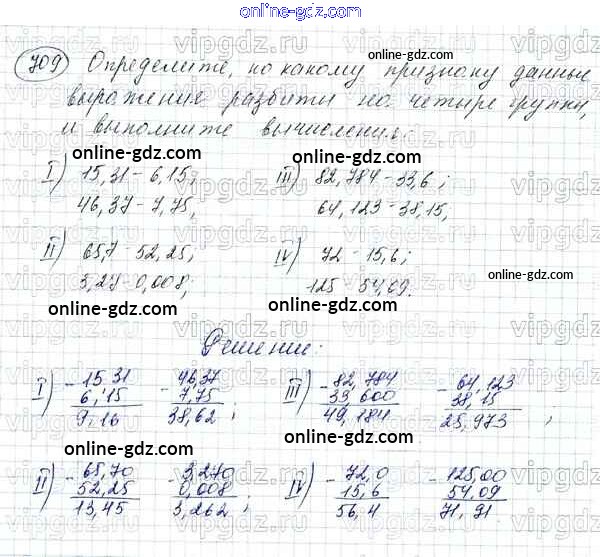 online-gdz.com
709 Определите, по какому признаку данные
выражения разбиты на четыре группы,
и выполните вычисления:
online-gdz.com
I) 15,31 - 6,15; III) 82,784 - 33,6;
46,37 - 7,75; 64,123 - 38,15;
online-gdz.com
II) 65,7 - 52,25; IV) 72 - 15,6;
3,27 - 0,008; 125 - 54,09.
online-gdz.com
Решение:
online-gdz.com
I) - 15,31 - 46,37 III) - 82,784 - 64,123
6,15 7,75 33,600 38,15
9,16 38,62 ; 49,184 25,973 ;
online-gdz.com
II) - 65,70 - 3,270 IV) - 72,0 - 125,00
52,25 0,008 15,6 54,09
13,45 3,262 ; 56,4 71,91
online-gdz.com